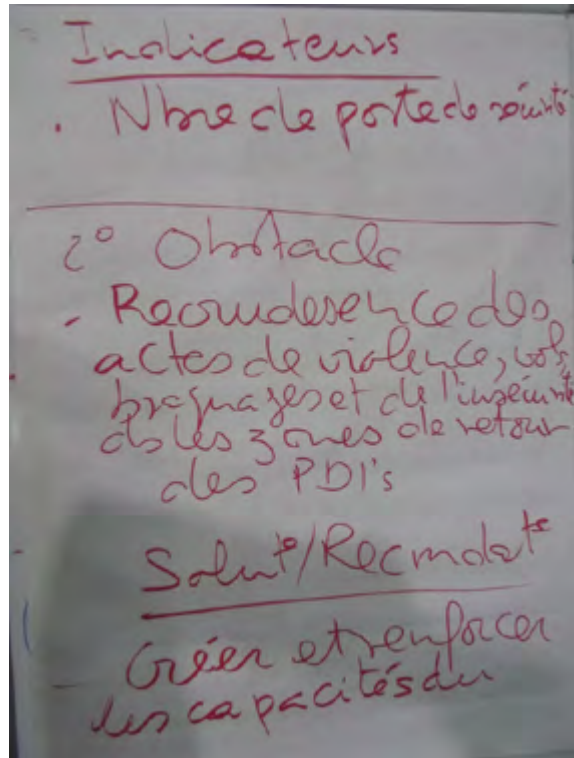 Indicateurs
. Nbre de poste de sécurité
2° Obstacle
- Recrudesence des
actes de violence, vols,
braquages et de l'insécurité
ds les zones de retour
des PDI's
Solut°/Recmdat°
- Créer et renforcer
les capacités du